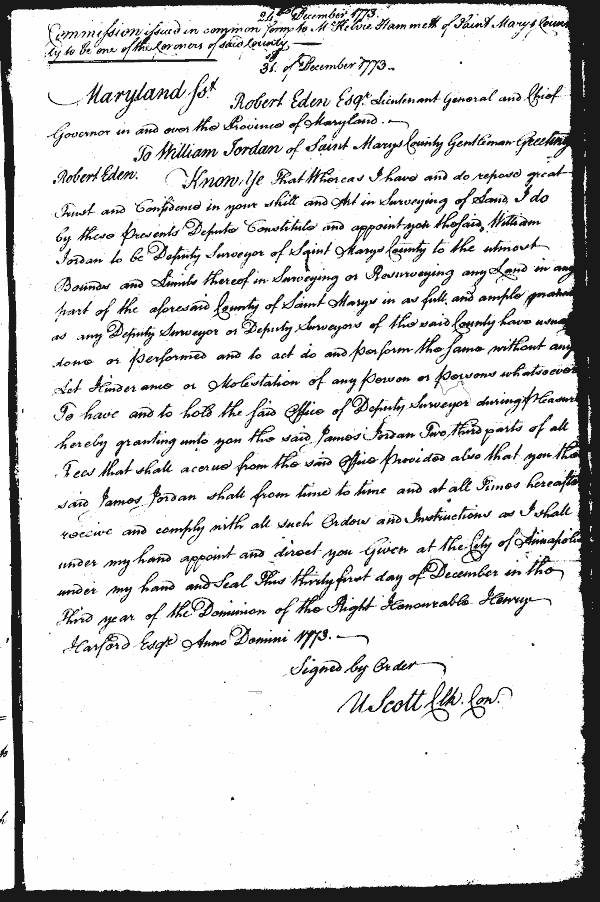 24th December 1773.
Commission issued in common form to Mr Kelvie Hammett of Saint Marys Coun
ty to be one of the Coroners of said County
31st of December 1773.
Maryland Sst. Robert Eden Esqr. Lieutenant General and Chief
Governor in and over the Province of Maryland.
To William Jordan of Saint Marys County Gentleman Greeting
Robert Eden. Know Ye That Whereas I have and do repose great
Trust and Confidence in your skill and Art in Surveying of Land, I do
by these Presents Depute Constitute and appoint you the said, William
Jordan to be Deputy Surveyor of Saint Marys County to the utmost
Bounds and Limits thereof in Surveying or Resurveying any Land in any
part of the aforesaid County of Saint Marys in as full, and ample
as any Deputy Surveyor or Deputy Surveyors of the said County have
done or performed and to act do and perform the same without any
Let Hinderance or Molestation of any Person or persons whatsoever
To have and to hold the said Office of Deputy Surveyor during
hereby granting unto you the said James Jordan Two, third parts of all
Fees that shall accrue from the said Office Provided also that you the
said James Jordan shall from time to time and at all Times hereafter
receive and comply with all such Orders and Instructions as I shall
under my hand appoint and direct you Given at the City of Annapolis
under my hand and Seal This thirty first day of December in the
Third year of the Dominion of the Right Honourable Henry
Harford Esqr. Anno Domini 1773.
Signed by Order
U Scott Clk. Con.